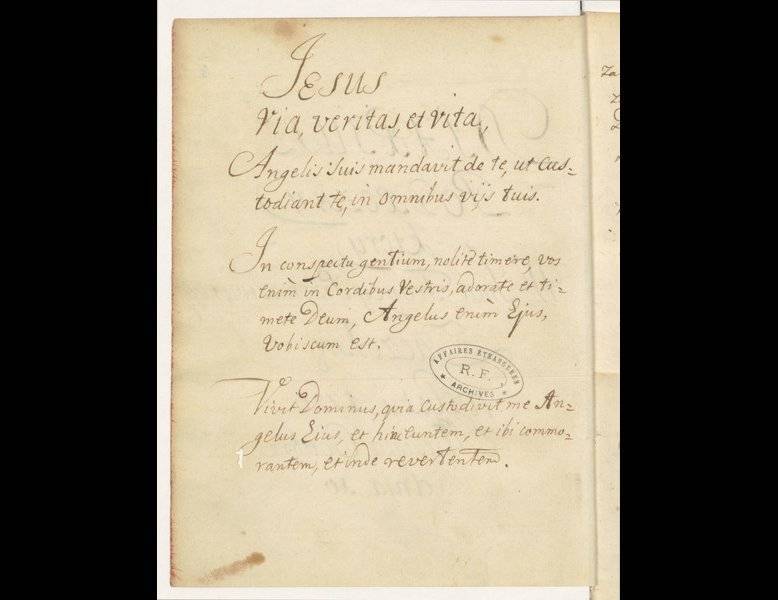 Jesus
Via, veritas, et vita,
Angelis suis mandavit de te, ut Cus=
todiant te, in omnibus vijs tuis.
In conspectu gentium, nolite timere, vos
enim in Cordibus Vestris, adorate et ti=
mete Deum, Angelus enim Ejus,
Vobiscum est.
AFFAIRES ÉTRANGÈRES
R.F.
ARCHIVES
Vivit Dominus, quia Custodivit me An=
gelus Eius, et hinc Euntem, et ibi commo=
rantem, et inde revertentem.
Za